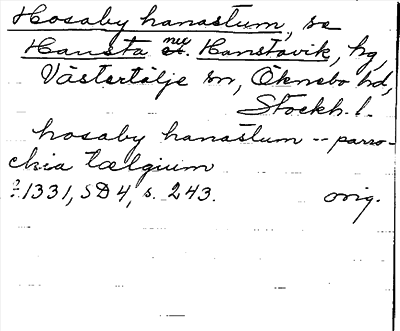 Hosaby hanastum, se
Hansta nu. Hanstavik, hg,
Västertälje sn, Öknebo hd,
Stockh. l.
hosaby hanastum -- parro-
chia tælgium
? 1331, SD4, s. 243. orig.